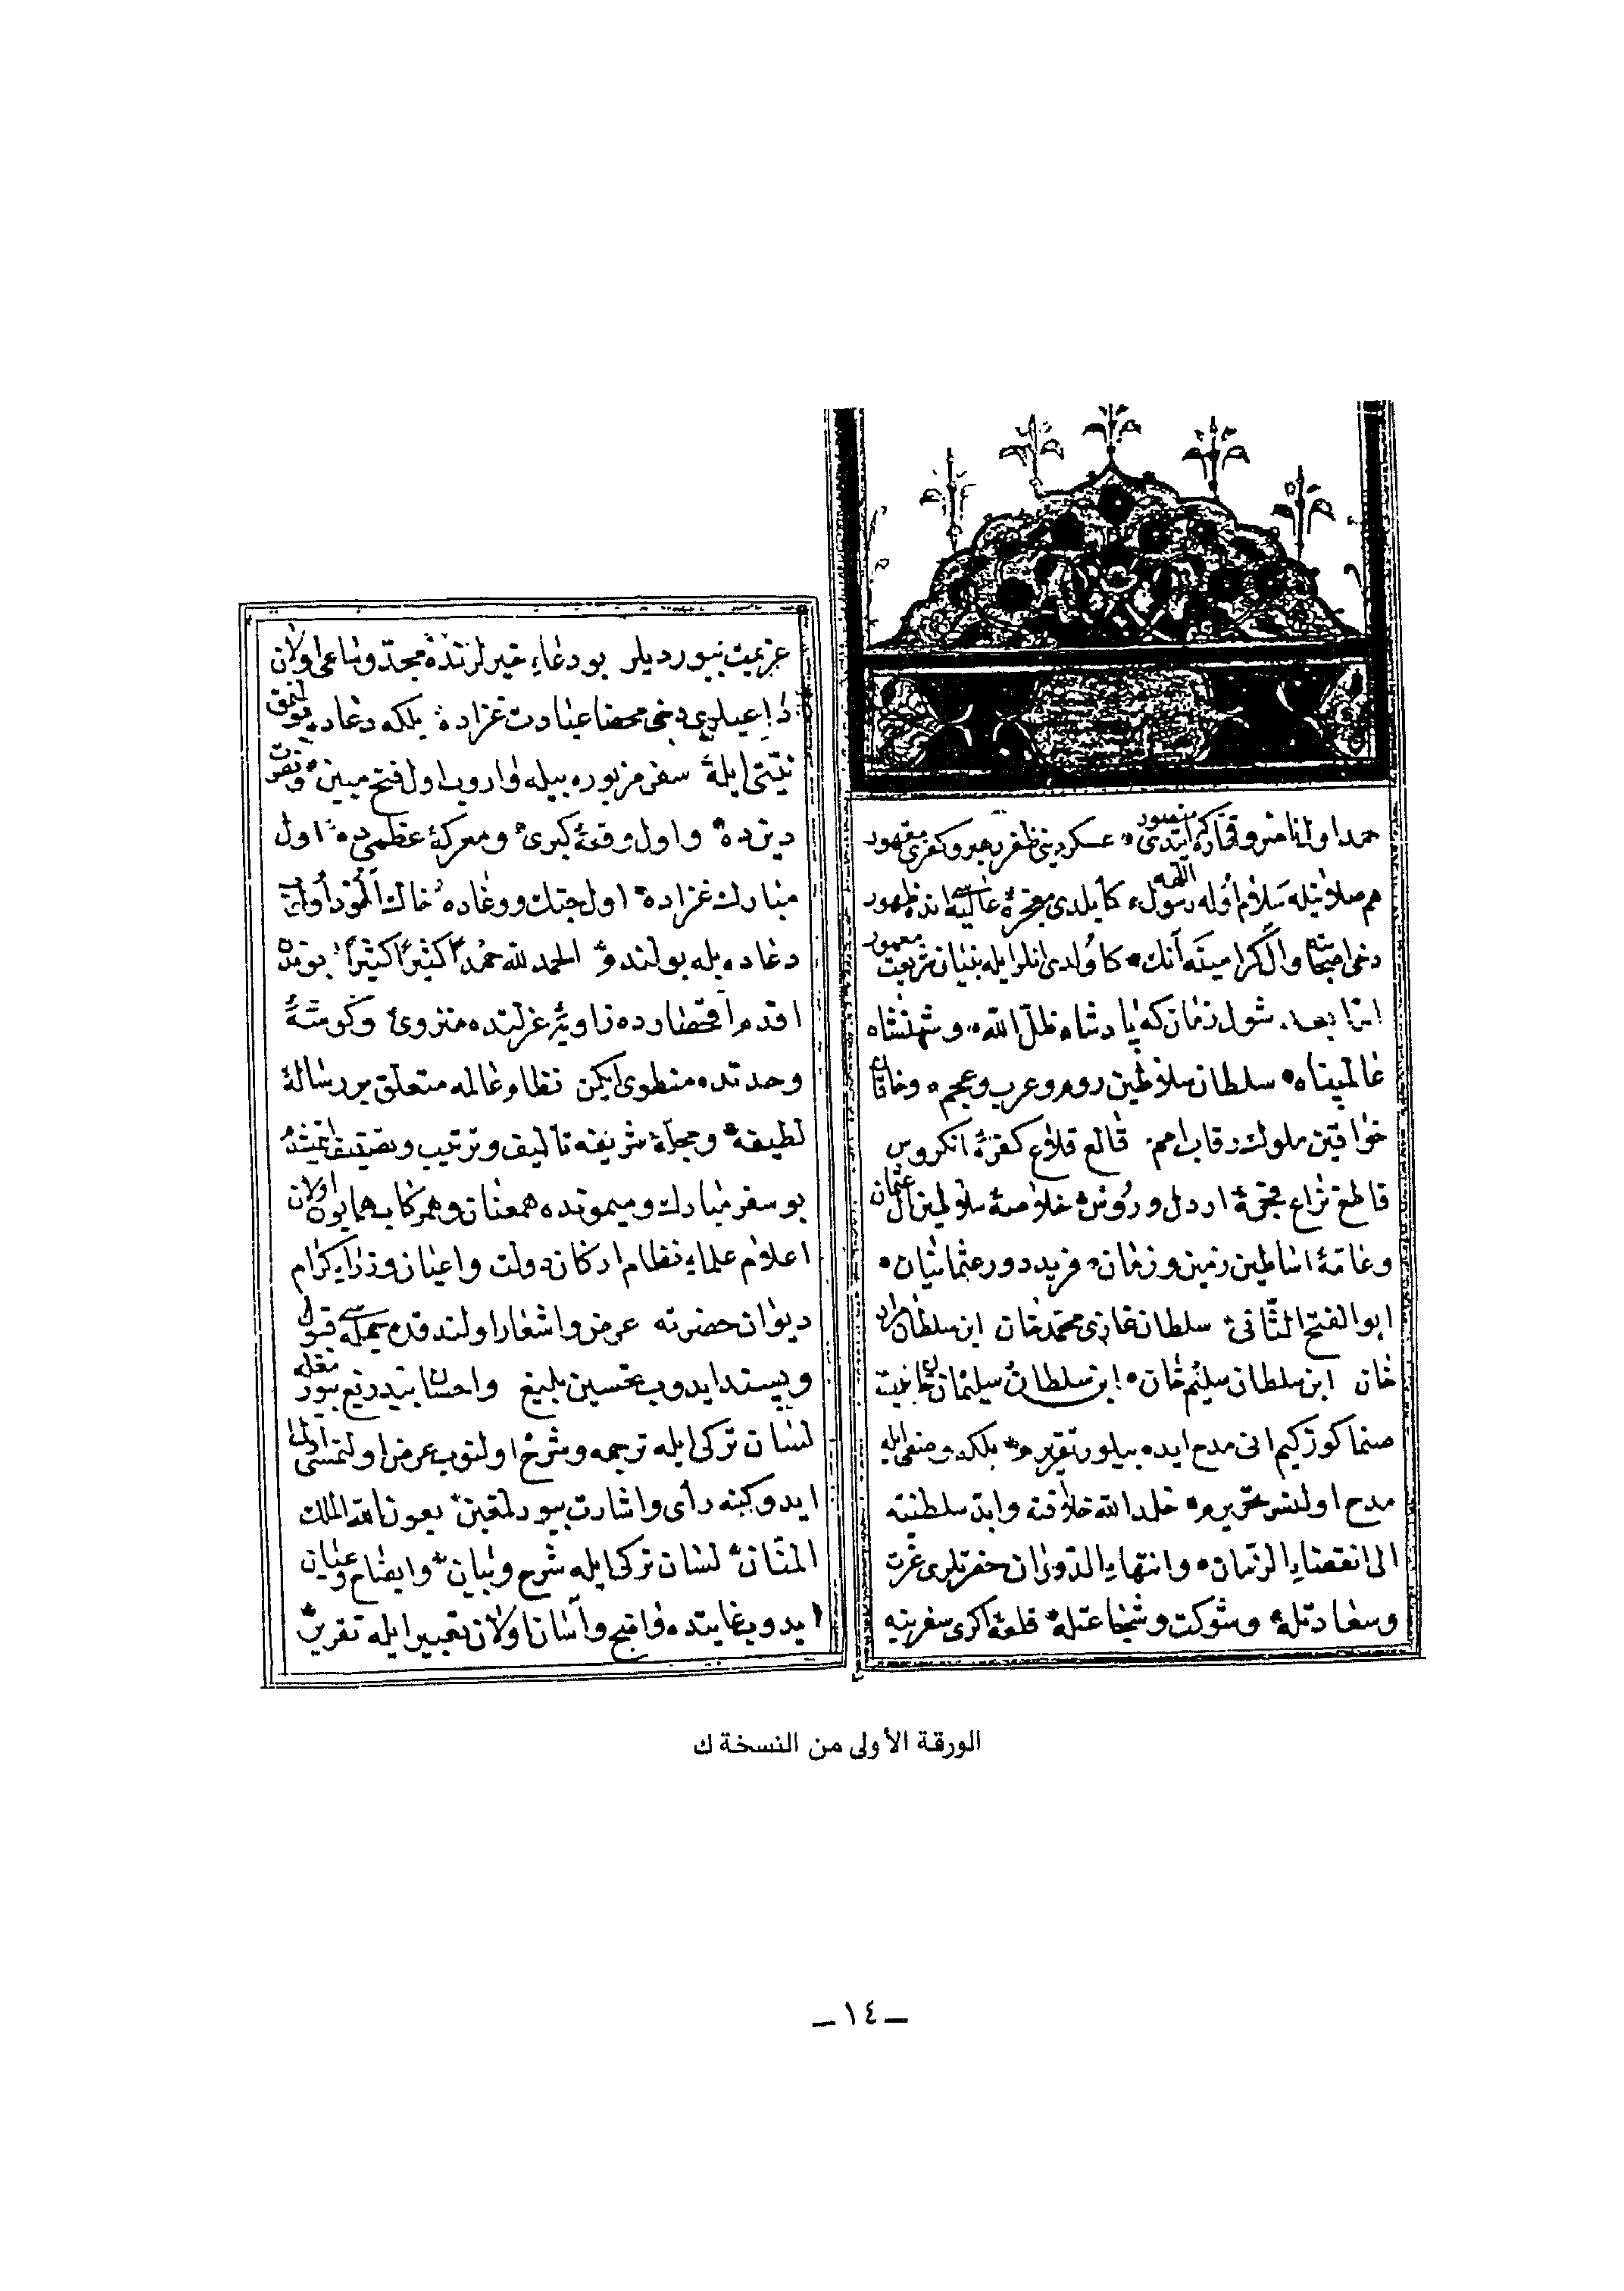 حمد اول ناصر و قهاره كه ايتدى منصور عسكر دينى ظفر رهبر و كفرى مقهور
هم صلاتيله سلام اوله رسول الله كا كلدى معجزهٔ عاليه انده ظهور
دخى اصحاب وآل كرامينه آنك كاولدى انلر ايله بنيان شريعت معمور
اما بعد شول زمان كه پادشاه ظل الله و شهنشاه
عالمپناه سلطان سلاطين روم و عرب و عجم وخاقان
خواقين ملوك رقاب امم قالع قلاع كفرهٔ انكروس
قاطع نزاع فجرهٔ اردل و روس خلاصهٔ سلاطين آل عثمان
و اساطين زمين و زمان فريد دور عثمانيان
ابو الفتح الثانى سلطان غازى محمد خان ابن سلطان مراد
خان ابن سلطان سليم خان ابن سلطان سليمان خان
كيم انى مدح ايده بيلور تقريرم بلكه وصفى ايله
مدح اولنسر تحريرم خلد الله خلافته وابد سلطنته
الى انقضاء الزمان وانتهاء الدوران حضرتلرى عزت
وسعادتله وشوكت وشجاعتله قلعهٔ اكرى سفرينه
عزيمت بيورديلر بو دعاء خير لرنده مجد و ساعى اولان
داعيلرى دخى محضا عبادت غزاده بلكه دعاده بولنمق
نيتى ايله سفر مزبوره بيله واروب اول فتح مبين ونصرت
ديزده و اول وقعهٔ كبرى و معركهٔ عظمى ده اول
مبارك غزاده اول جنك ووغاده خاك
دعاده بله بولندو الحمد لله حمدا كثيرا كثيرا بونده
اقدم زاويهٔ عزلتده منزوى وكوشهٔ
وحدتده منطوى ايكن نظام عالمه متعلق بر رسالهٔ
لطيفه و مجلهٔ شريفه تأليف و ترتيب و تصنيف ايتمشدم
بو سفر مبارك و ميمونده همعنان و همركاب همايون اولان
اعلام علماء نظام اركان دولت واعيان وزراء كرام
ديوان حضرته عرض واشعار اولندقده قبول
و پسند ايدوب تحسين بليغ واحسان بيدريغ
لسان تركى ايله ترجمه و شرح اولنوب عرض اولنمسنى
رأى و اشارت بيوردلر بعون الله الملك
المنان لسان تركى ايله شرح و بيان وايضاح وعيان
ايدوب غايتده واضح و آسان اولان تعبير ايله تقرير
الورقة الأولى من النسخة ك
ـ ١٤ ـ